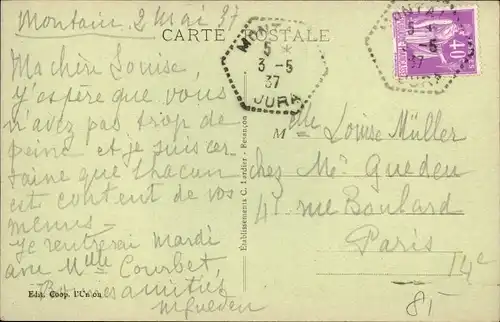 Montain 2 Mai 37
CARTE POSTALE
MONTAIN
5 *
3-5
37
JURA
MONTAIN
5
-5
37
JURA
40
Ma chère Louise,
J'espère que vous
n'avez pas trop de
peine et je suis cer
taine que chacun
est content de vos
menus
Je rentrerai mardi
avec Mlle Courbet,
Bonnes amitiés
MGueden
Etablissements C. Lardier - Besançon
Mlle Louise Müller
chez Me Gueden
4 rue Boulard
Paris
14e
85
Edit. Coop. l'Union